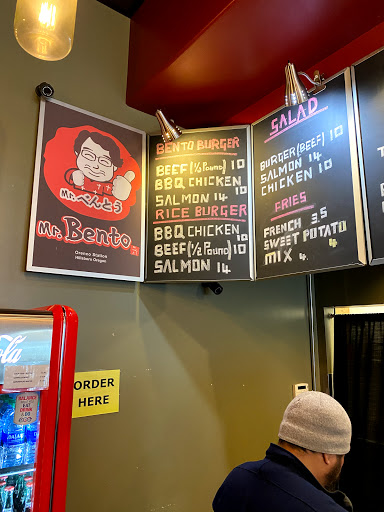 Mr.べんとう
Mr. Bento
Orenco Station
Hillsboro Oregon
BENTO BURGER
BEEF (1/2 Pound) 10
BBQ CHICKEN 10
SALMON 14
RICE BURGER
BBQ CHICKEN 10
BEEF (1/2 Pound) 10
SALMON 14
SALAD
BURGER (BEEF) 10
SALMON 14
CHICKEN 10
FRIES
FRENCH 3.5
SWEET POTATO 4
MIX 4
ORDER
HERE